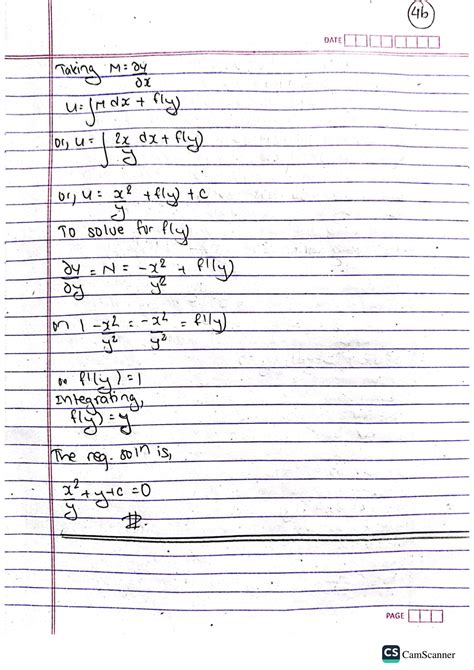 4b
DATE
Taking M = ∂u/∂x
u = ∫ M dx + f(y)
or, u = ∫ 2x/y dx + f(y)
or, u = x²/y + f(y) + c
To solve for f(y)
∂u/∂y = N = -x²/y² + f'(y)
or 1 - x²/y² = -x²/y² = f'(y)
or f'(y) = 1
Integrating,
f(y) = y
The req. soln is,
x²/y + y + c = 0
#.
PAGE
CS CamScanner